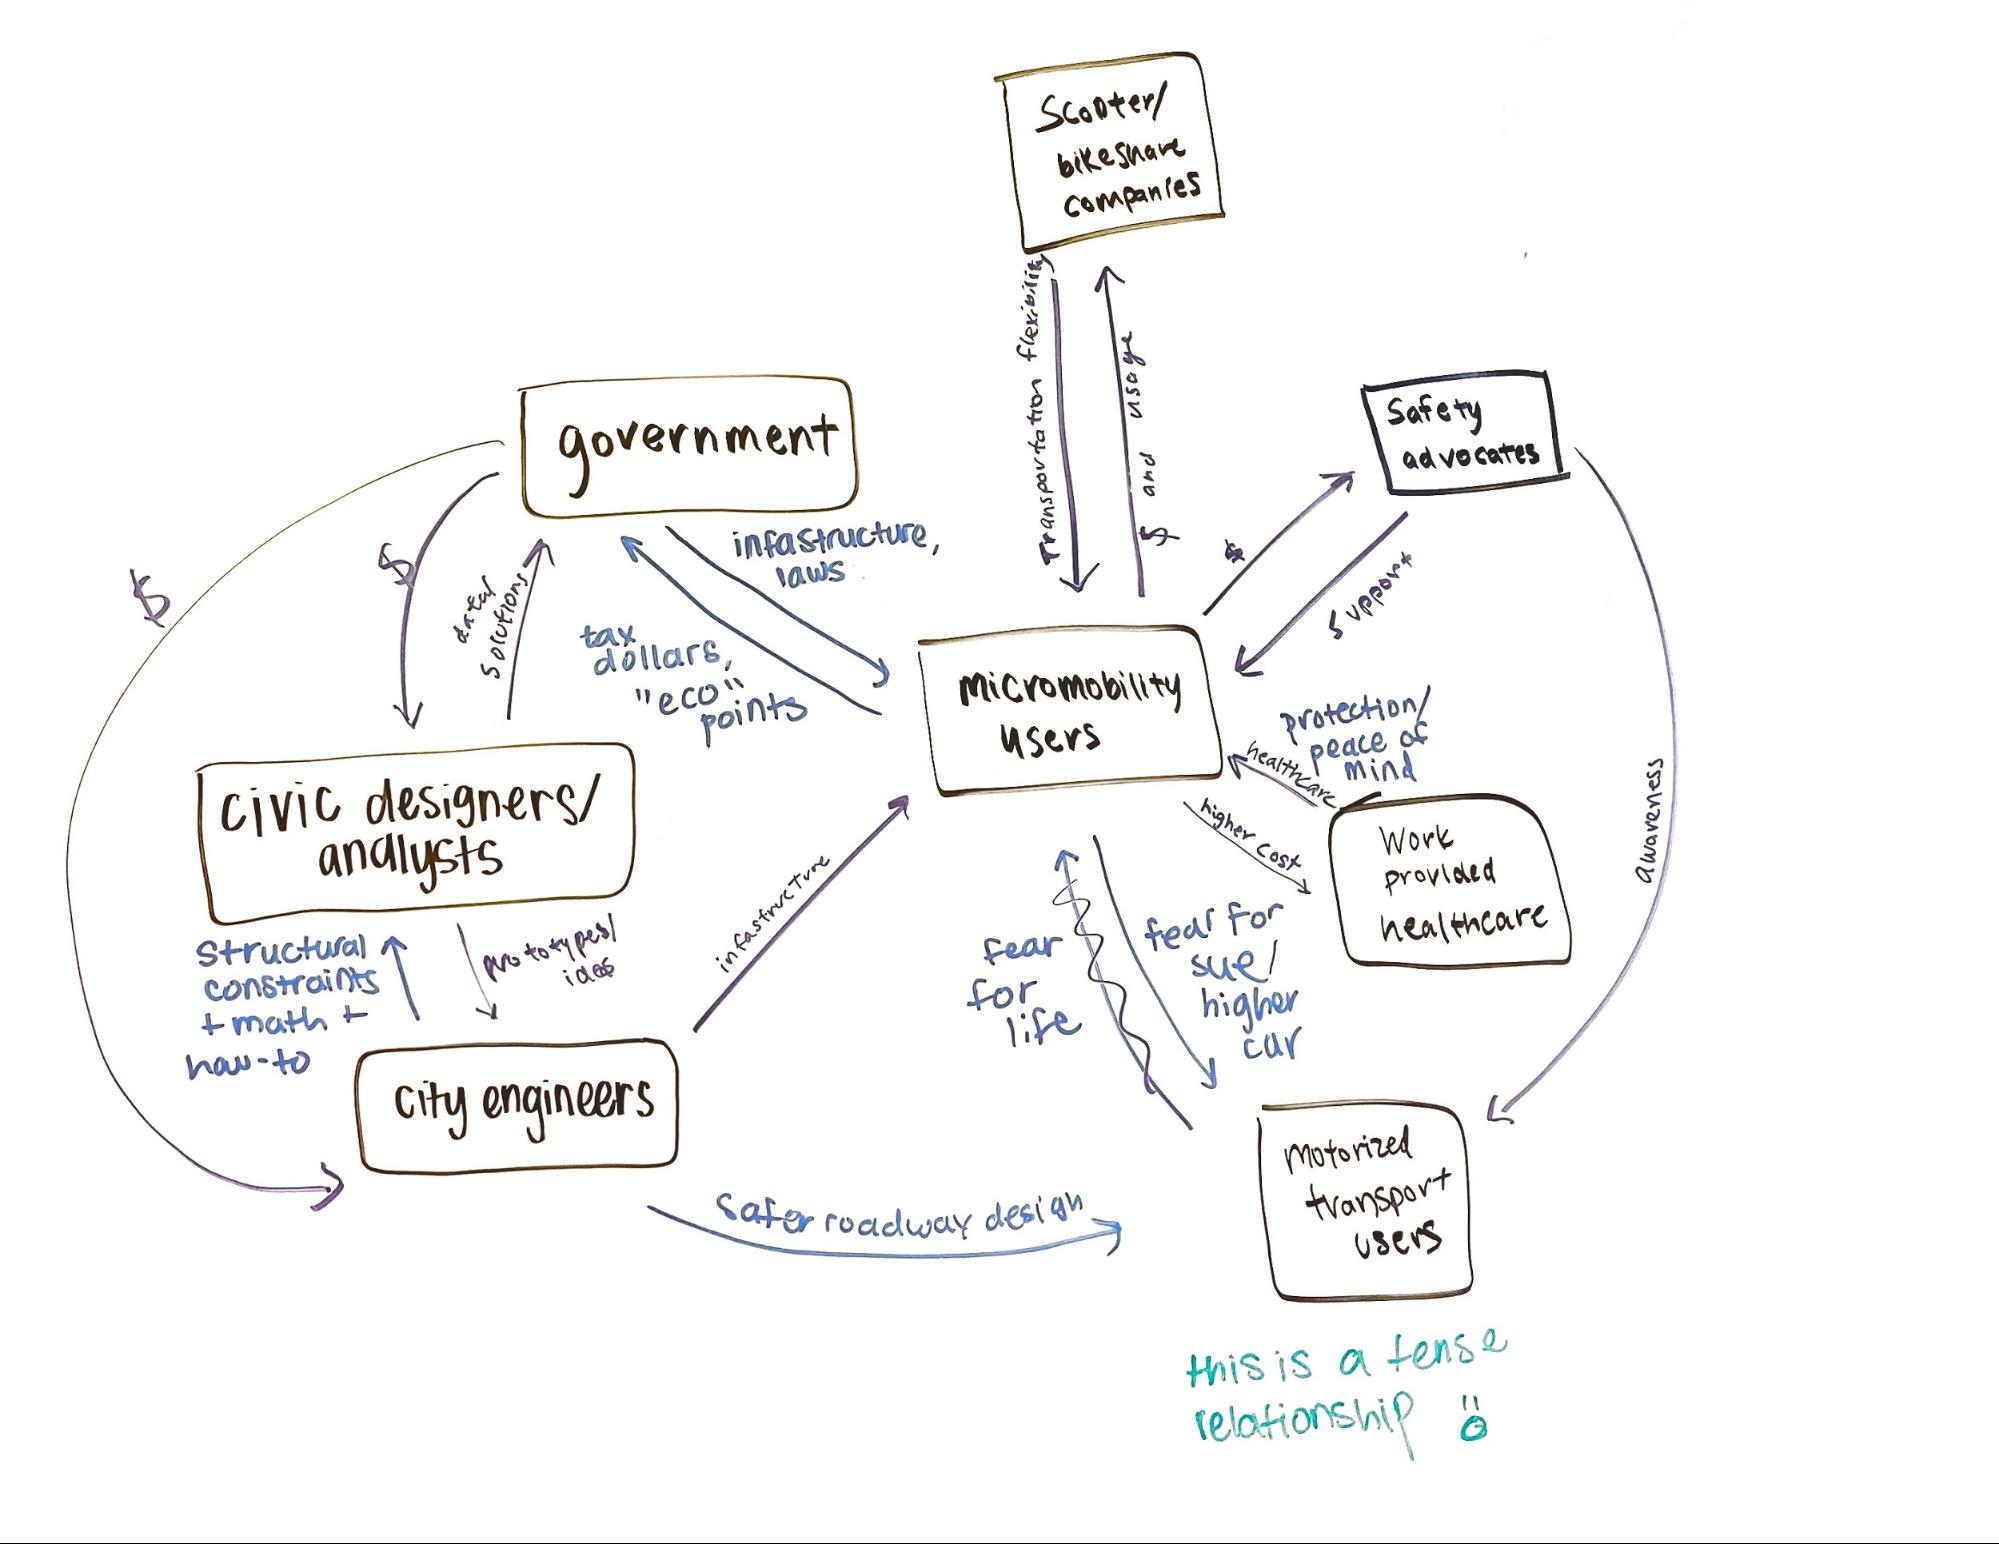 Scooter/
bikeshare
companies
Transportation flexibility
$ and usage
government
Safety
advocates
$
$
data/
solutions
infastructure,
laws
tax
dollars,
"eco"
points
$
support
micromobility
users
protection/
peace of
mind
healthcare
higher cost
Work
provided
healthcare
awareness
civic designers/
analysts
structural
constraints
+ math +
how-to
prototypes/
ideas
infastructure
fear
for
life
fear for
sue/
higher
car
city engineers
Safer roadway design
Motorized
transport
users
this is a tense
relationship